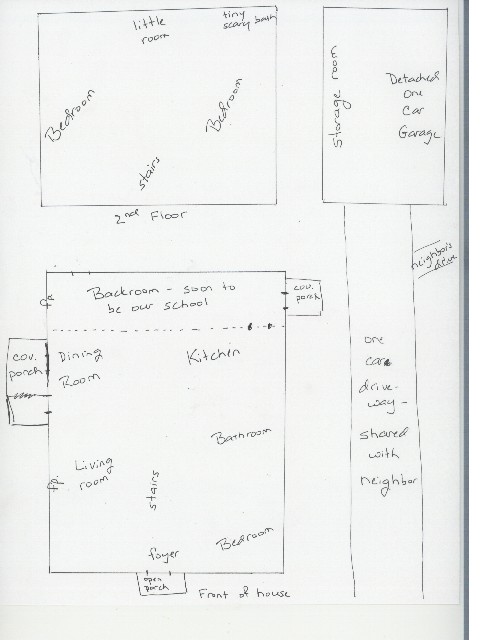 little
room
tiny
scary bath
Bedroom
Bedroom
stairs
2nd Floor
Storage room
Detached
One
Car
Garage
neighbor's
drive
Backroom - soon to
be our school
cov.
porch
cov.
porch
Dining
Room
Kitchen
Bathroom
Living
room
stairs
Bedroom
foyer
open
porch
Front of house
one
car
drive-
way -
shared
with
neighbor